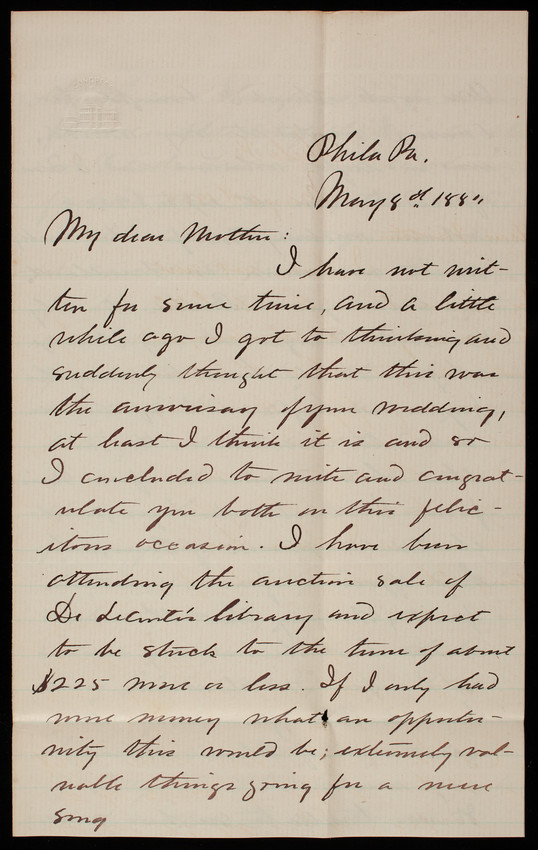 Phila Pa.
May 8th 1880.
My dear Mother:
I have not writ-
ten for some time, and a little
while ago I got to thinking and
suddenly thought that this was
the anniversary of your wedding,
at least I think it is and so
I concluded to write and congrat-
ulate you both on this felic-
itous occasion. I have been
attending the auction sale of
Dr LeConte's library and expect
to be stuck to the tune of about
$225 more or less. If I only had
more money what an opportu-
nity this would be; extremely val-
uable things going for a mere
song